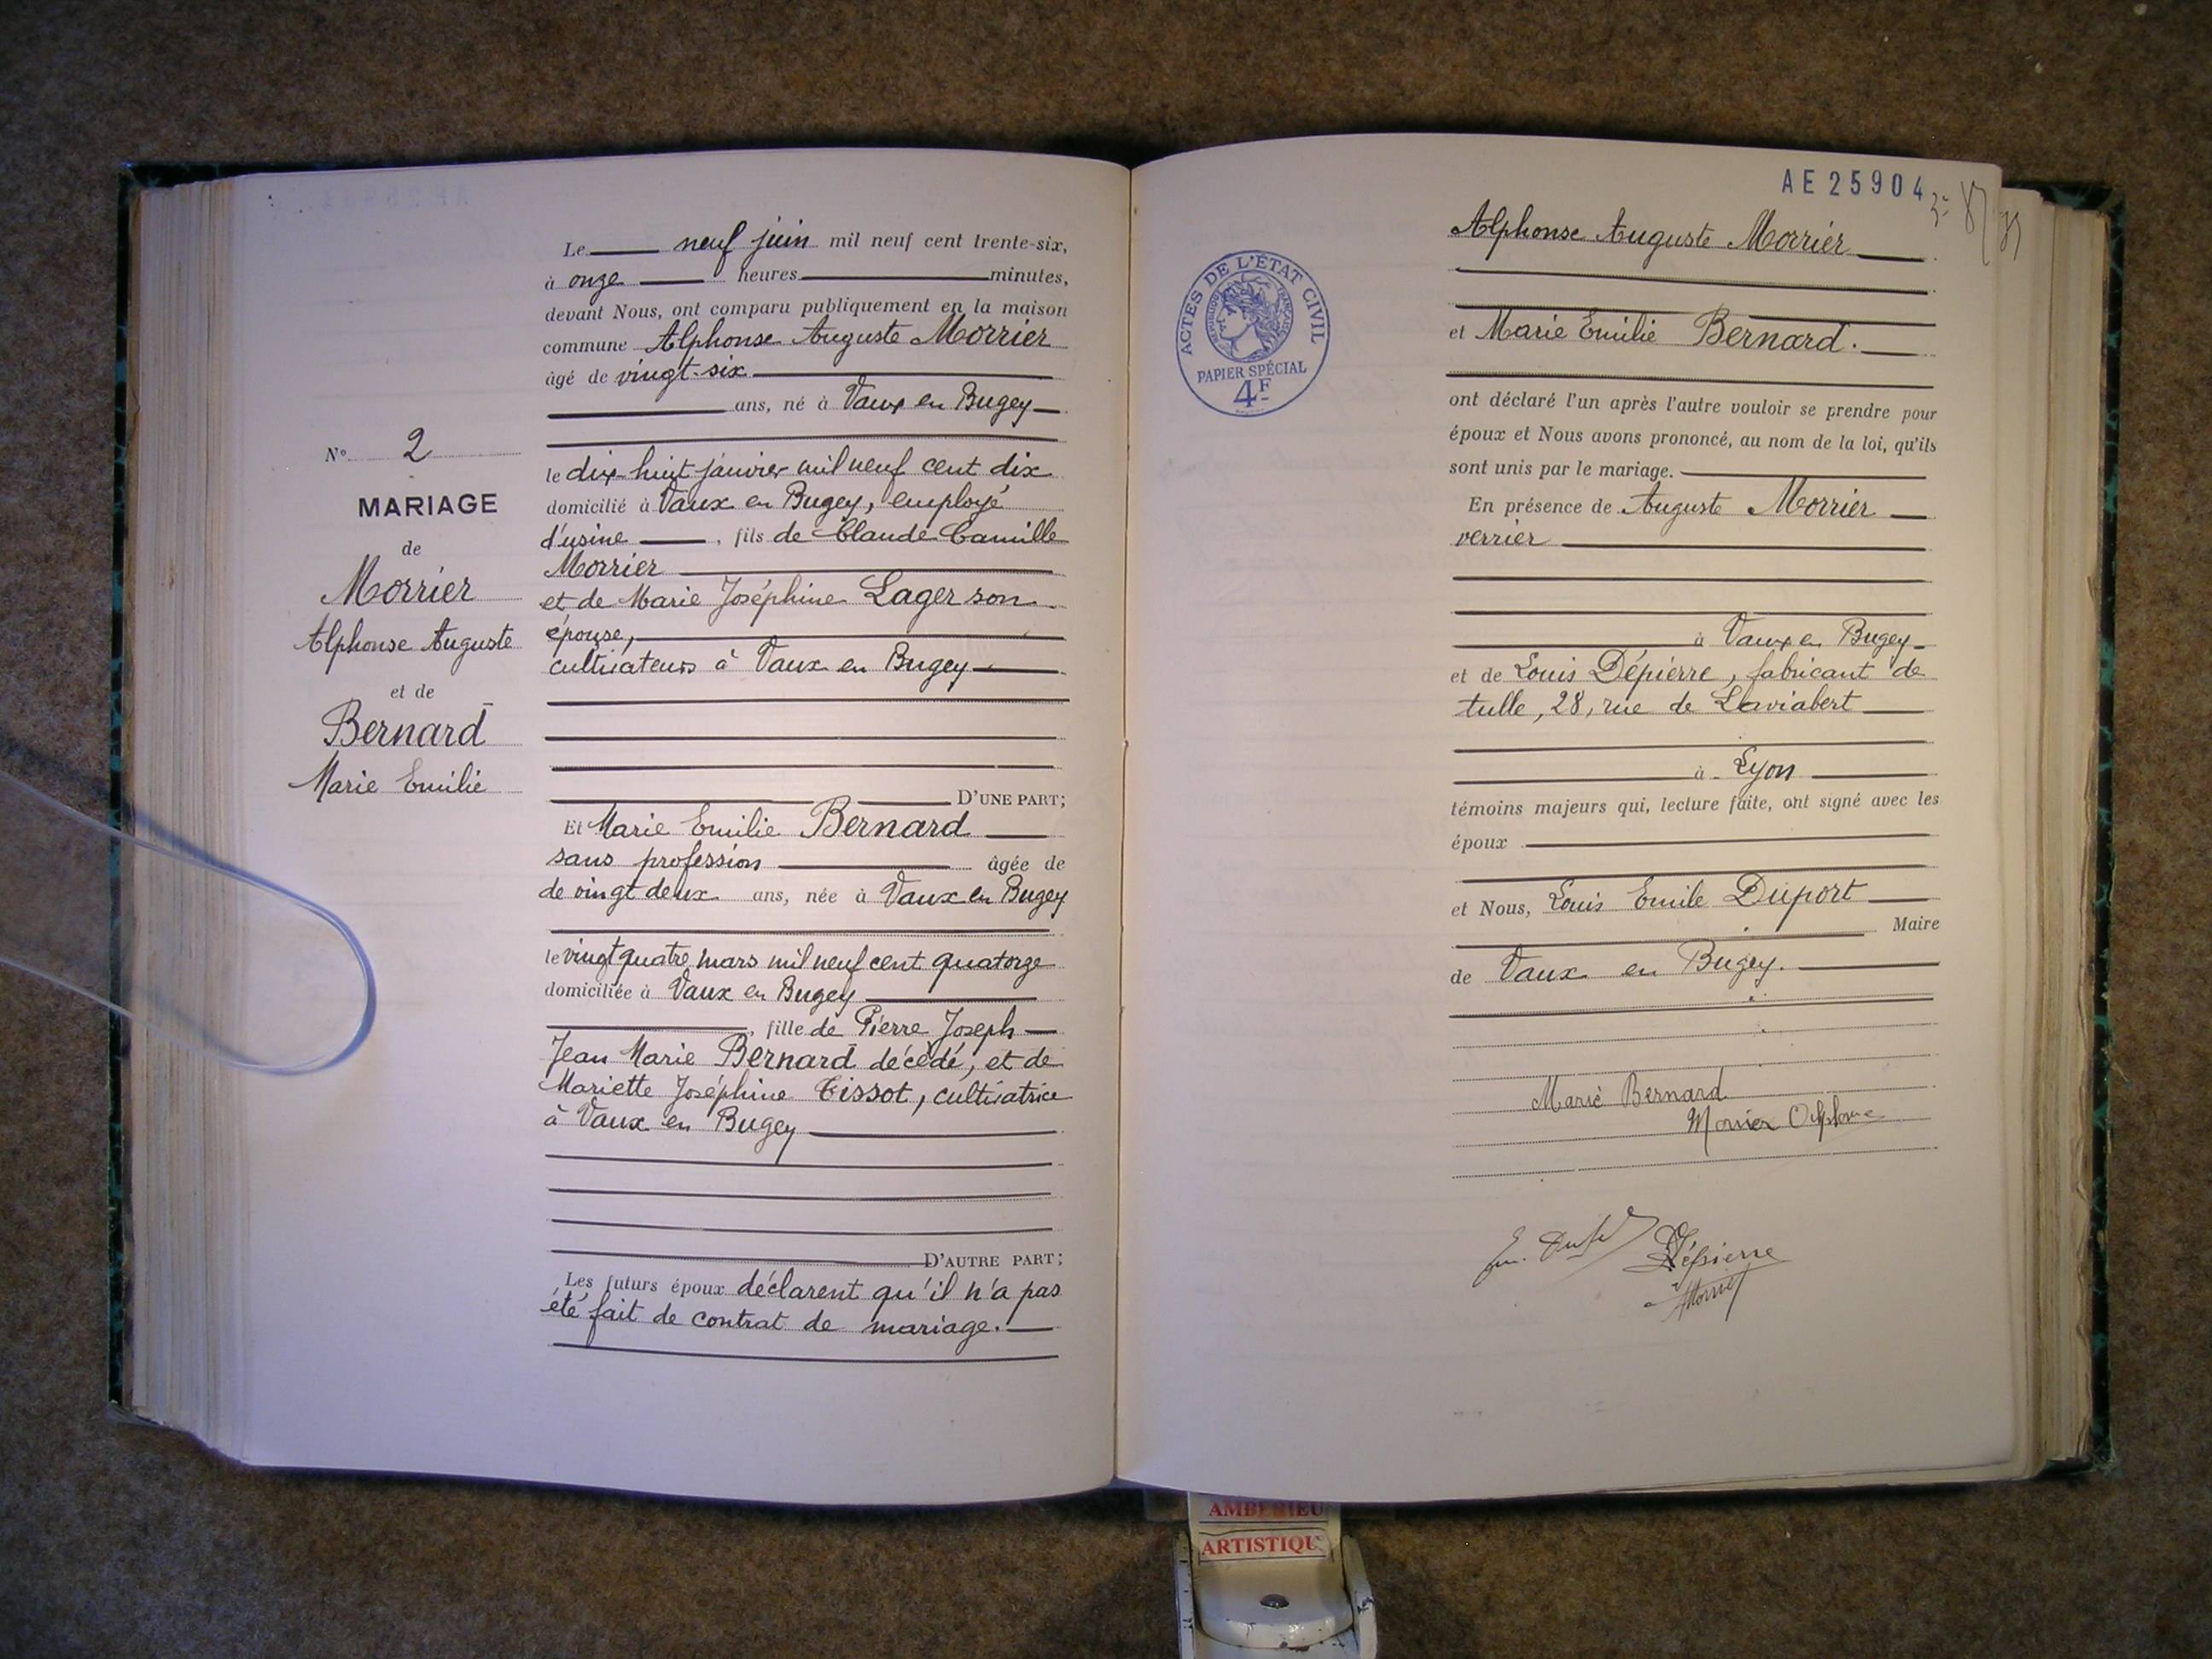 Le neuf juin mil neuf cent trente-six,
à onze heures minutes,
devant Nous, ont comparu publiquement en la maison
commune Alphonse Auguste Morrier
âgé de vingt-six
ans, né à Vaux en Bugey
le dix-huit janvier mil neuf cent dix
domicilié à Vaux en Bugey, employé
d'usine, fils de Claude Camille
Morrier
et de Marie Joséphine Lager son
épouse,
cultivateurs à Vaux en Bugey
D'UNE PART;
Et Marie Emilie Bernard
sans profession âgée de
de vingt deux ans, née à Vaux en Bugey
le vingt quatre mars mil neuf cent quatorze
domiciliée à Vaux en Bugey
, fille de Pierre Joseph
Jean Marie Bernard décédé, et de
Mariette Joséphine Tissot, cultivatrice
à Vaux en Bugey
D'AUTRE PART;
Les futurs époux déclarent qu'il n'a pas
été fait de contrat de mariage.
N° 2
MARIAGE
de
Morrier
Alphonse Auguste
et de
Bernard
Marie Emilie
AE25904
ACTES DE L'ÉTAT CIVIL
RÉPUBLIQUE FRANÇAISE
PAPIER SPÉCIAL
4F
Alphonse Auguste Morrier
et Marie Emilie Bernard.
ont déclaré l'un après l'autre vouloir se prendre pour
époux et Nous avons prononcé, au nom de la loi, qu'ils
sont unis par le mariage.
En présence de Auguste Morrier
verrier
à Vaux en Bugey
et de Louis Dépierre, fabricant de
tulle, 28, rue de
à Lyon
témoins majeurs qui, lecture faite, ont signé avec les
époux
et Nous, Louis Emile Duport
Maire
de Vaux en Bugey.
Marie Bernard
Morrier Alphonse
Dépierre
AMBERIEU
ARTISTIQU